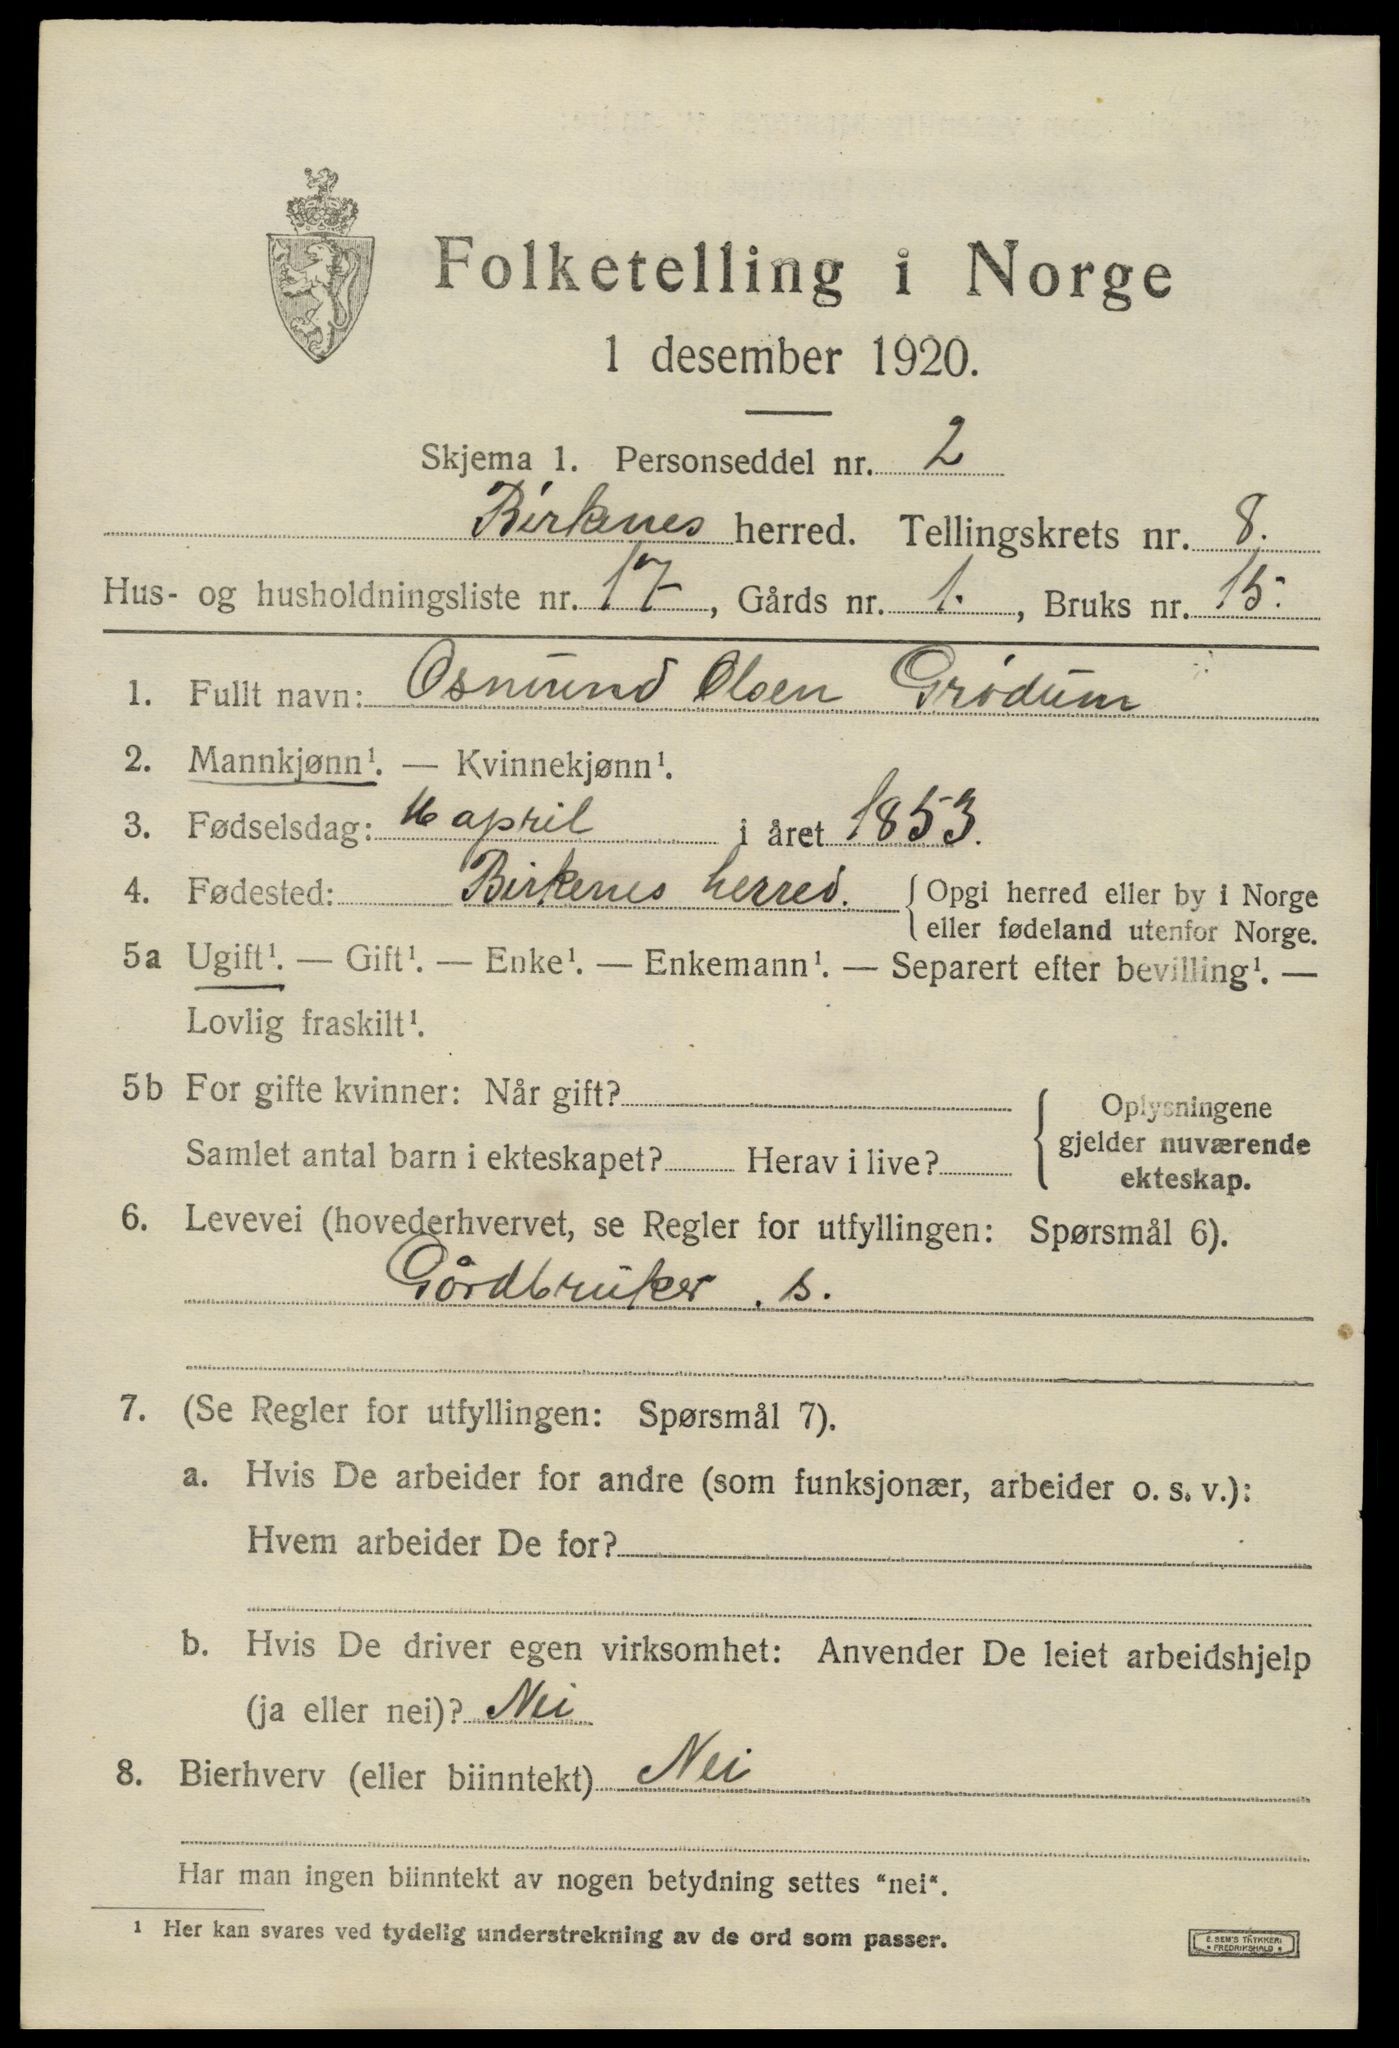 Folketelling i Norge
1 desember 1920.
Skjema 1. Personseddel nr. 2
Birknes herred. Tellingskrets nr. 8.
Hus- og husholdningsliste nr. 17, Gårds nr. 1., Bruks nr. 15.
1. Fullt navn: Osmund Olsen Grødum
2. Mannkjønn¹. — Kvinnekjønn¹.
3. Fødselsdag: 16 april i året 1853.
4. Fødested: Birkenes herred. { Opgi herred eller by i Norge
eller fødeland utenfor Norge.
5a Ugift¹. — Gift¹. — Enke¹. — Enkemann¹. — Separert efter bevilling¹. —
Lovlig fraskilt¹.
5b For gifte kvinner: Når gift?
Samlet antal barn i ekteskapet? Herav i live?
{ Oplysningene
gjelder nuværende
ekteskap.
6. Levevei (hovederhvervet, se Regler for utfyllingen: Spørsmål 6).
Gårdbruker . s.
7. (Se Regler for utfyllingen: Spørsmål 7).
a. Hvis De arbeider for andre (som funksjonær, arbeider o. s. v.):
Hvem arbeider De for?
b. Hvis De driver egen virksomhet: Anvender De leiet arbeidshjelp
(ja eller nei)? Nei
8. Bierhverv (eller biinntekt) Nei
Har man ingen biinntekt av nogen betydning settes "nei".
¹ Her kan svares ved tydelig understrekning av de ord som passer.
E. SEM'S TRYKKERI
* FREDRIKSHALD *